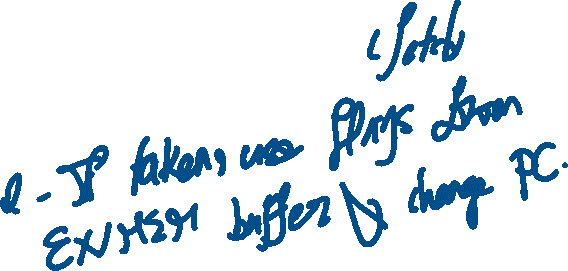 2 - If taken, use flags from
EX/MEM buffer & change PC.